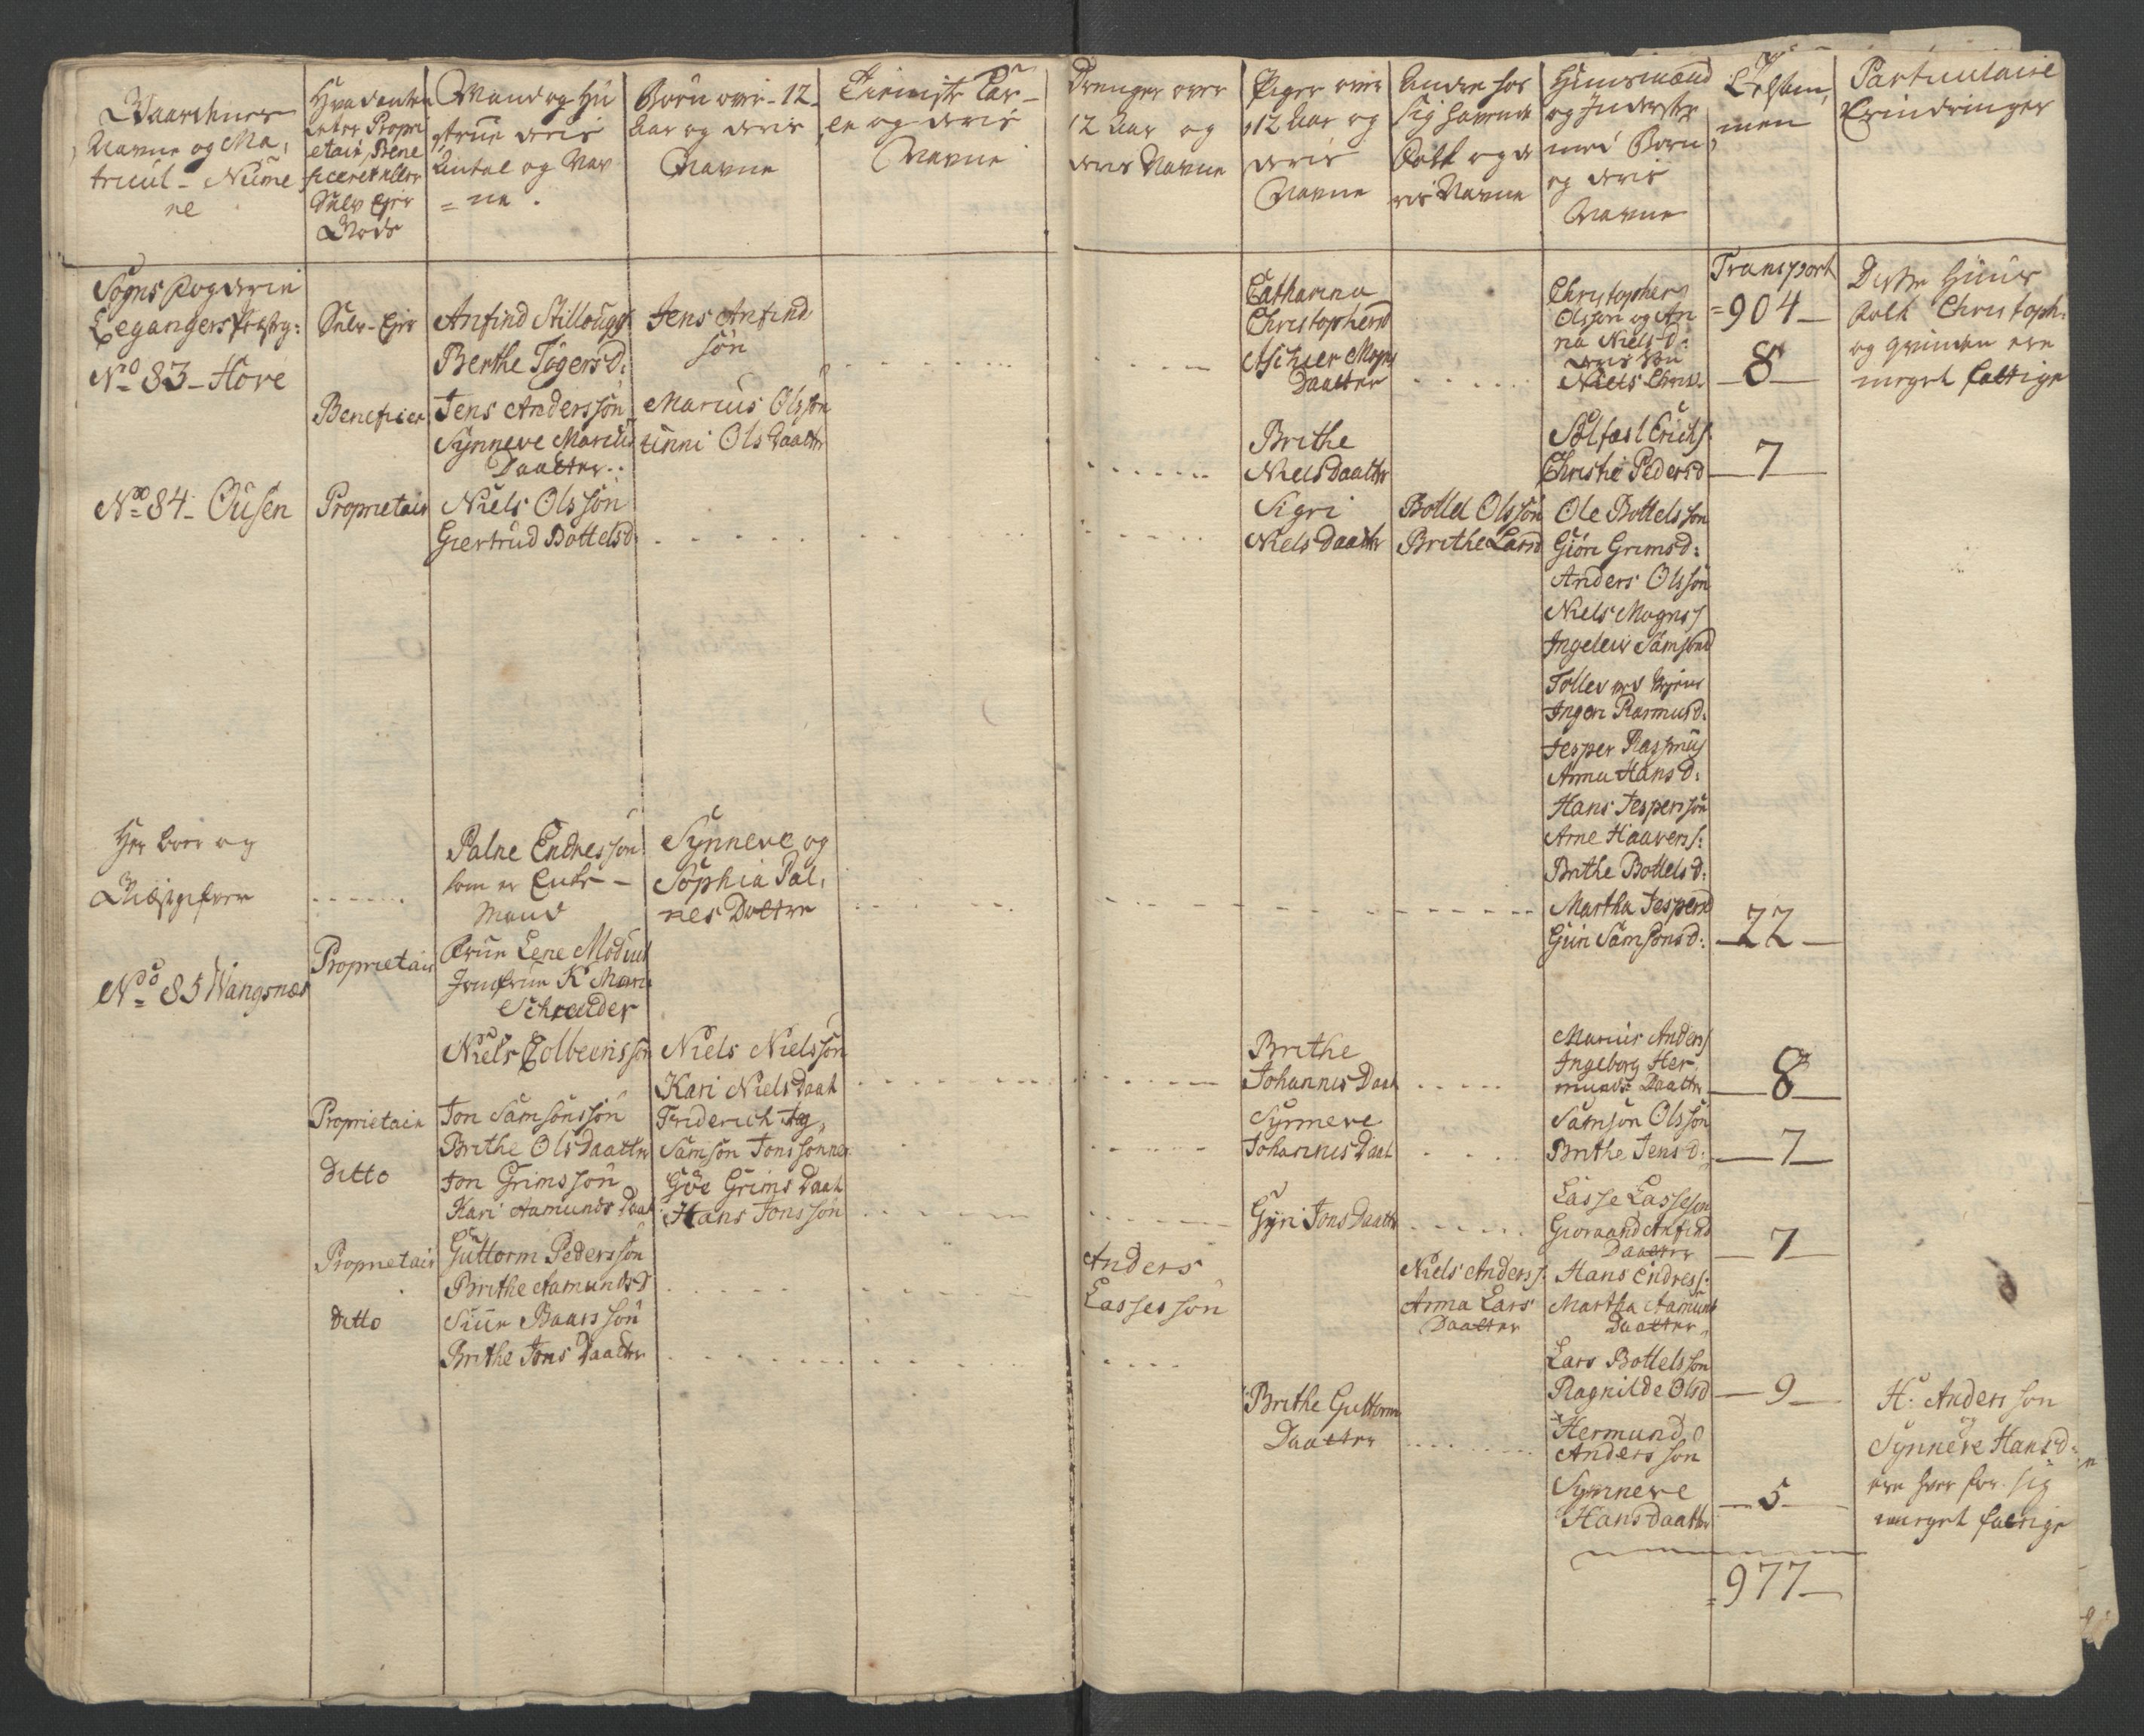 Gaardenes
Navne og Ma,
tricul - Nume
re
Hvad enten
det er Propri
etair, Bene
ficeret eller
Selv Ejer
Gods
Mand og Hu
strue deris
Antal og Nav
= ne.
Børn over - 12 -
Aar og deris
Navne
Tieniste Kar-
le og deris
Navne
Drenger over
12 Aar og
deris Navne
Piger over
12 Aar og
deris
Navne
Andre hos
sig havende
Folk og de
ris Navne
Huusmænd
og Inderste
med Børn
og deris
Navne
Total Sum,
men
Particulaire
Erindringer
Sogns Fogderie
Legangers Præstg:
No 83 - Hove
Selv-Ejer
Anfind Stillougs
Berthe Tøgersd:
Jens Anfind
søn
Catharina
Christophersd
Asthier Mogns
Daatter
Christopher
Olsson og An
na Nielsd:
deris Søn
Niels Chris.
Transport
=904-
8
Disse Huus
folk Christoph:
og qvinden ere
meget fattige
Beneficer
Jens Anderssøn
Synneve Marius
Daatter
Marius Olsøn
unni Ols Daatter
Brithe
Niels Daatter
Solfæst Erichs
Christie Pedersd
7
No 84 - Ousen
Proprietair
Niels Olssøn
Giertrud Bottelsd:
Sigri
Niels Daatter
Bottel Olssøn
Brithe Larsd
Ole Bottelssøn
Giøri Grimsd:
Anders Olssøn
Niels Mognss
Ingeleiv Samsond
Tollev ved Søen
Ingeri Rasmusd:
Jesper Rasmus
Anna Hansd:
Hans Jesperssøn
Arne Haavers:
Brithe Bottelsd:
Martha Jespersd
Guri Samsonsd:
Her boer og
Gæstgiver
Palne Endressøn
som er Enke-
Mand
Synneve og
Sophia Pal,
nes Døttre
22
No 85 Wangsnæs
Proprietair
Frue Lene Modul
Jomfrue K Mari
Schrøder
Niels Colbeenssøn
Niels Nielssøn
Kari Niels Daat
Brithe
Johannis Daat
Marius Anders
Ingeborg Her
munds Daatter
8
Proprietair
Jon Samsonssøn
Brithe Ols Daatter
Friderich og
Samson Jonssønner
Synneve
Johannis Daat
Samson Olssøn
Brithe Jensd:
7
Ditto
Jon Grimssøn
Kari Aamunds Daat
Gøe Grims Daat
Hans Jonssøn
Gyri Jons Daatter
Lasse Lassesøn
Giøraand Anfind
Daatter
7
Proprietair
Guttorm Pederssøn
Brithe Aamundsd
Anders
Lassessøn
Niels Anderss:
Anna Lars
Daatter
Hans Endress:
Martha Aamund
Daatter
Ditto
Siur Baarssøn
Brithe Jons Daatter
Lars Bottelssøn
Ragnilde Olsd
9
Brithe Guttorm
Daatter
Hermund
Anderssøn
Synneve
Hansdaatter
5
H: Anderssøn
og
Synneve Hansd:
ere hver for sig
meget fattige
=977-